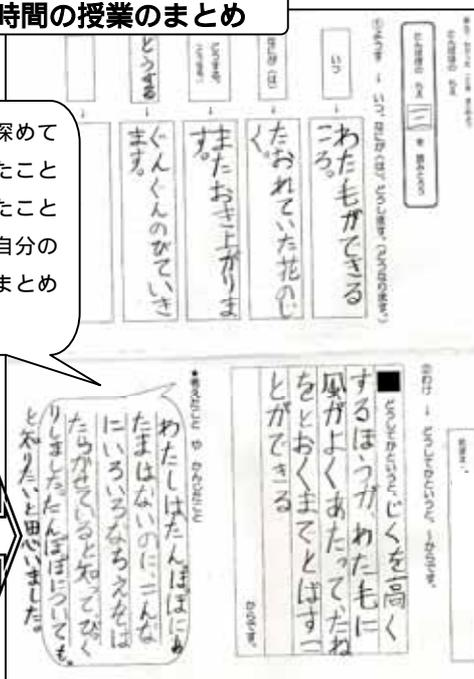 時間の授業のまとめ
深めて
たこと
たこと
自分の
まとめ
たんぽぽの ちえ 三 を 読みとろう
①ようす → いつ、なにが(は)、どうします。(どうなります。)
いつ
↓
わた毛ができる
ころ。
なにが(は)
↓
たおれていた花のじ
く。
どうする。
↓
またおき上がりま
す。
どうする
↓
ぐんぐんのびていき
ます。
②わけ → どうしてかというと、~からです。
どうしてかというと、じくを高く
するほうが、わた毛に
風がよくあたって、たね
をとおくまでとばすこ
とができる
からです。
●考えたこと や かんじたこと
わたしはたんぽぽにあ
たまはないのに、こんな
にいろいろなちえをは
たらかせていると知って、びっく
りしました。たんぽぽについても。
と知りたいと思いました。